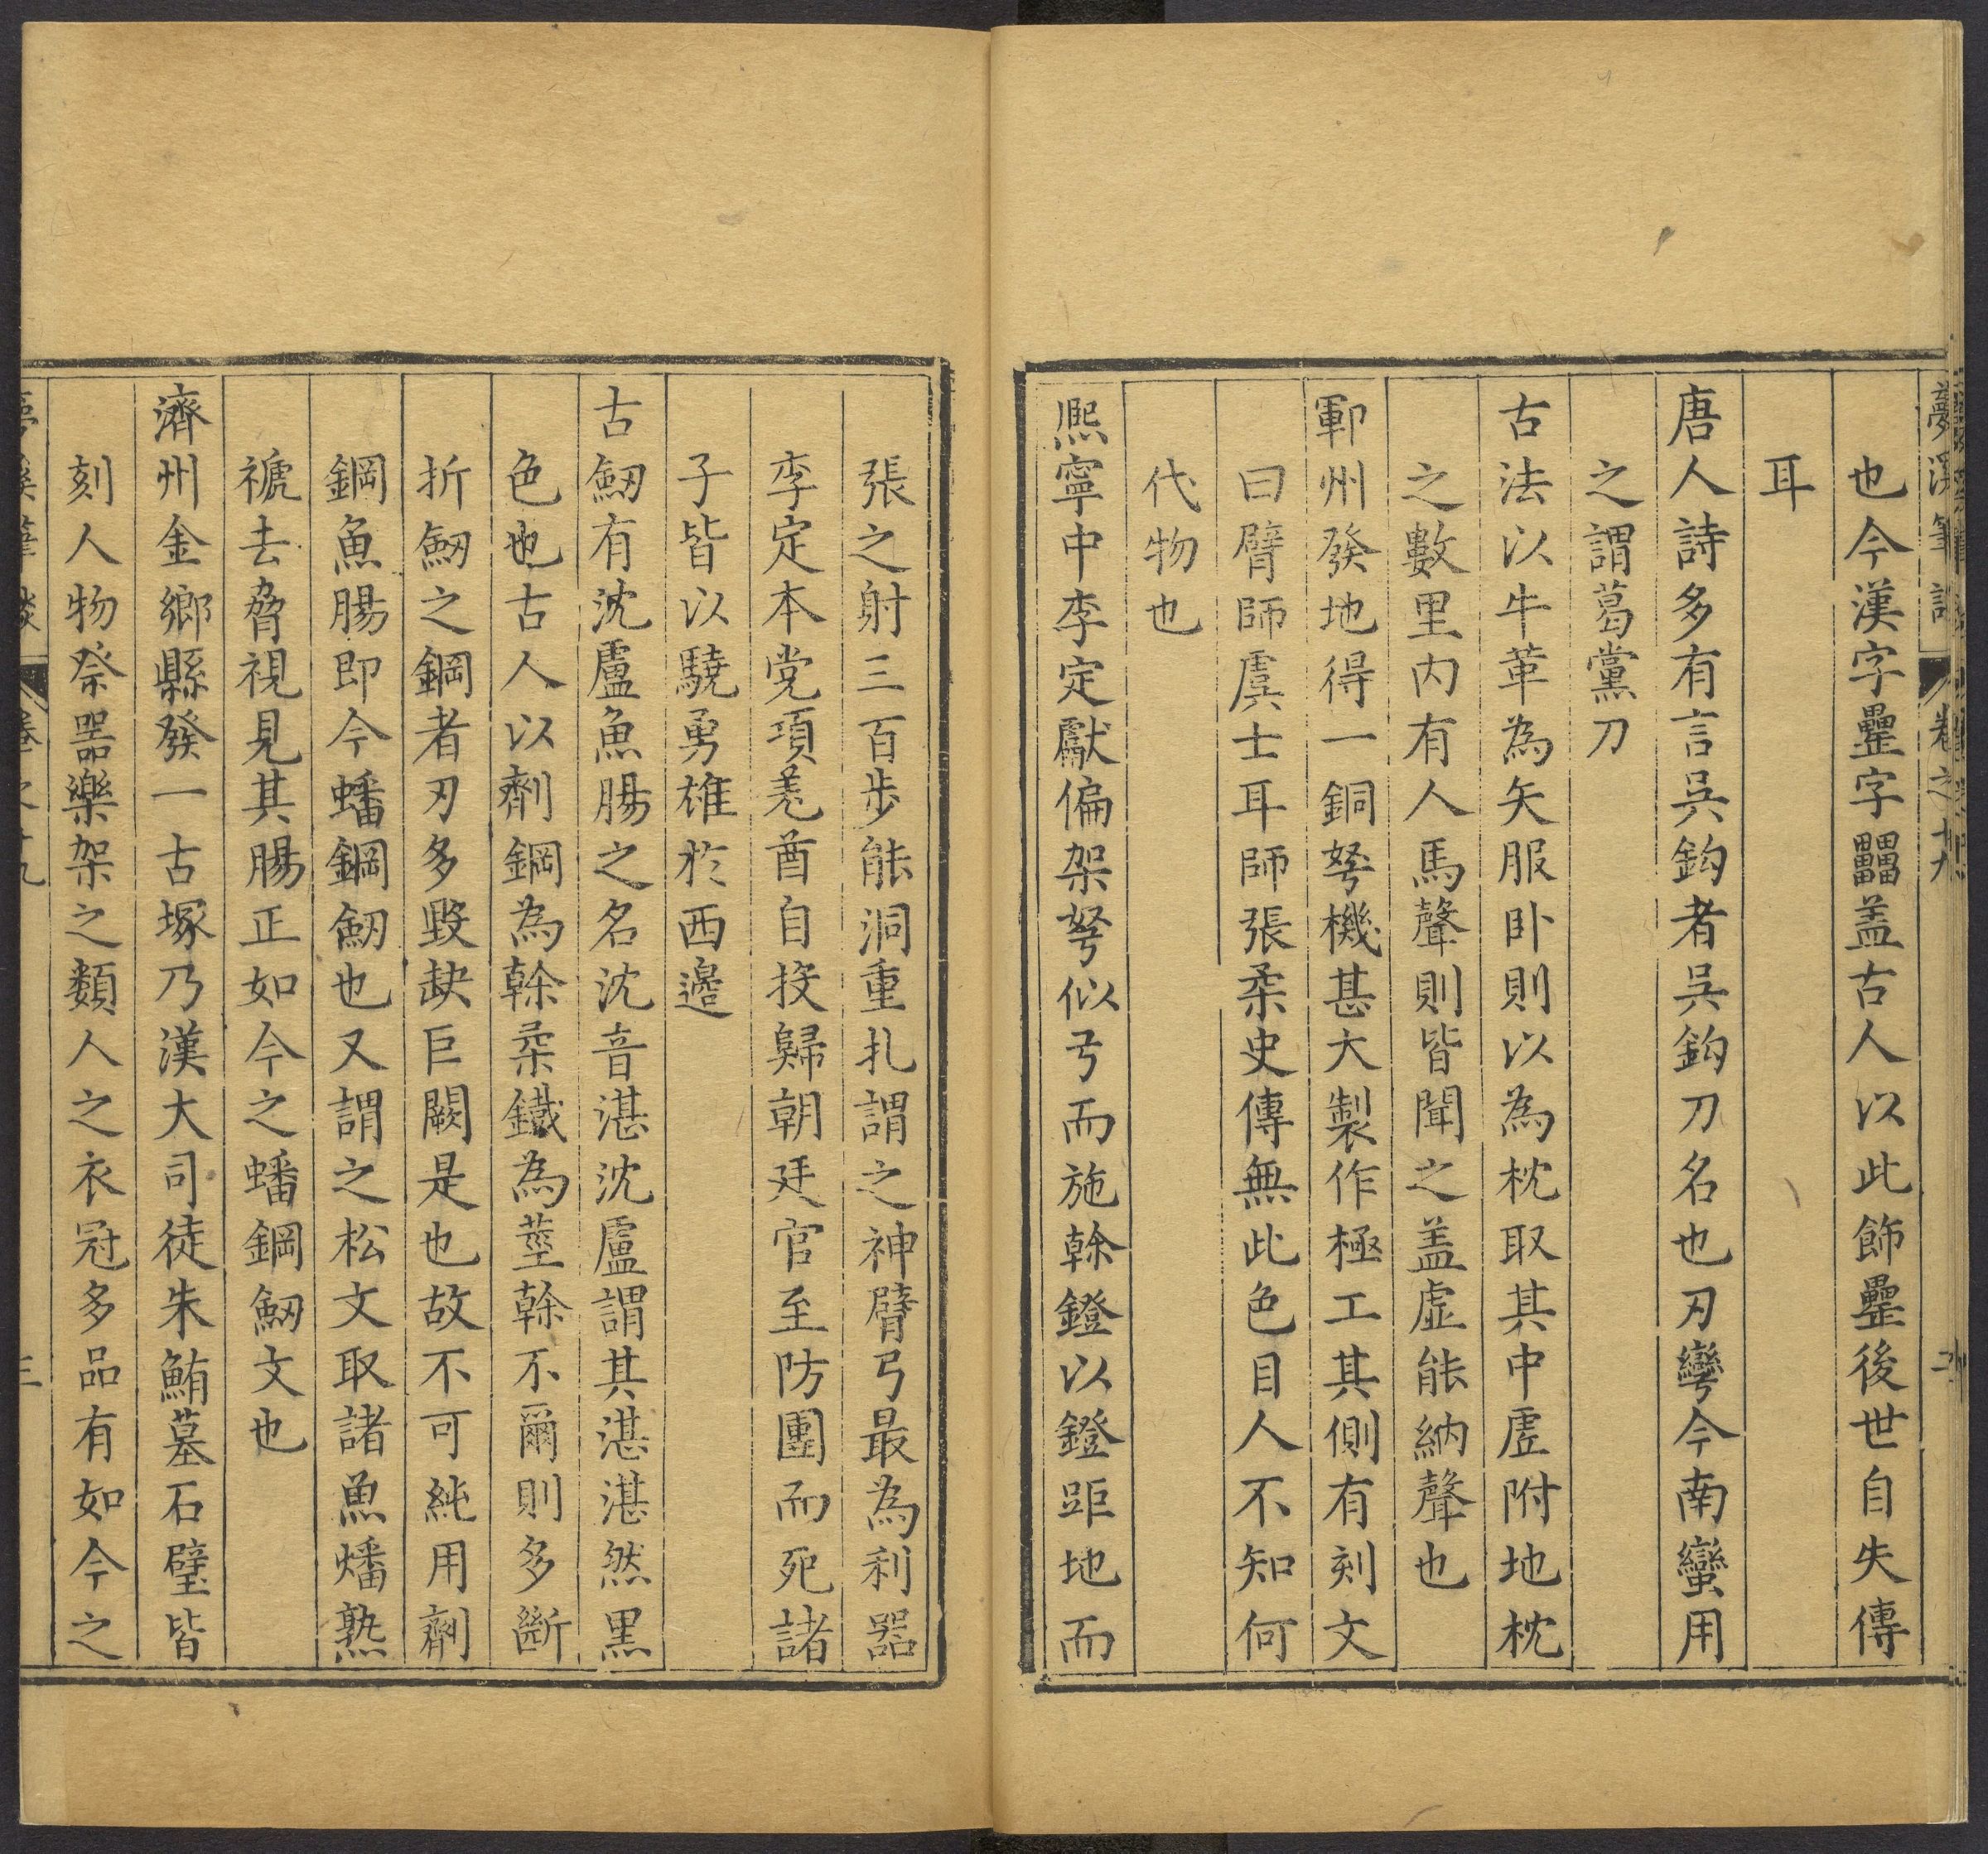 夢溪筆談 卷之十九
也今漢字罍字𤴐蓋古人以此飾罍後世自失傳
耳
唐人詩多有言吳鈎者吳鈎刀名也刃彎今南蠻用
之謂葛黨刀
古法以牛革為矢服卧則以為枕取其中虛附地枕
之數里內有人馬聲則皆聞之盖虛能納聲也
鄆州發地得一銅弩機甚大製作極工其側有刻文
曰臂師虞士耳師張柔史傳無此色目人不知何
代物也
熙寧中李定獻偏架弩似弓而施榦鐙以鐙距地而
張之射三百步能洞重扎謂之神臂弓最為利器
李定本党項羌酋自投歸朝廷官至防團而死諸
子皆以驍勇雄於西邊
古劒有沈盧魚腸之名沈音湛沈盧謂其湛湛然黑
色也古人以劑鋼為榦柔鐵為莖榦不爾則多斷
折劒之鋼者刃多毀缺巨闕是也故不可純用劑
鋼魚腸即今蟠鋼劒也又謂之松文取諸魚燔熟
褫去脅視見其腸正如今之蟠鋼劒文也
濟州金鄉縣發一古塚乃漢大司徒朱鮪墓石壁皆
刻人物祭器樂架之類人之衣冠多品有如今之
夢溪筆談 卷之十九 三